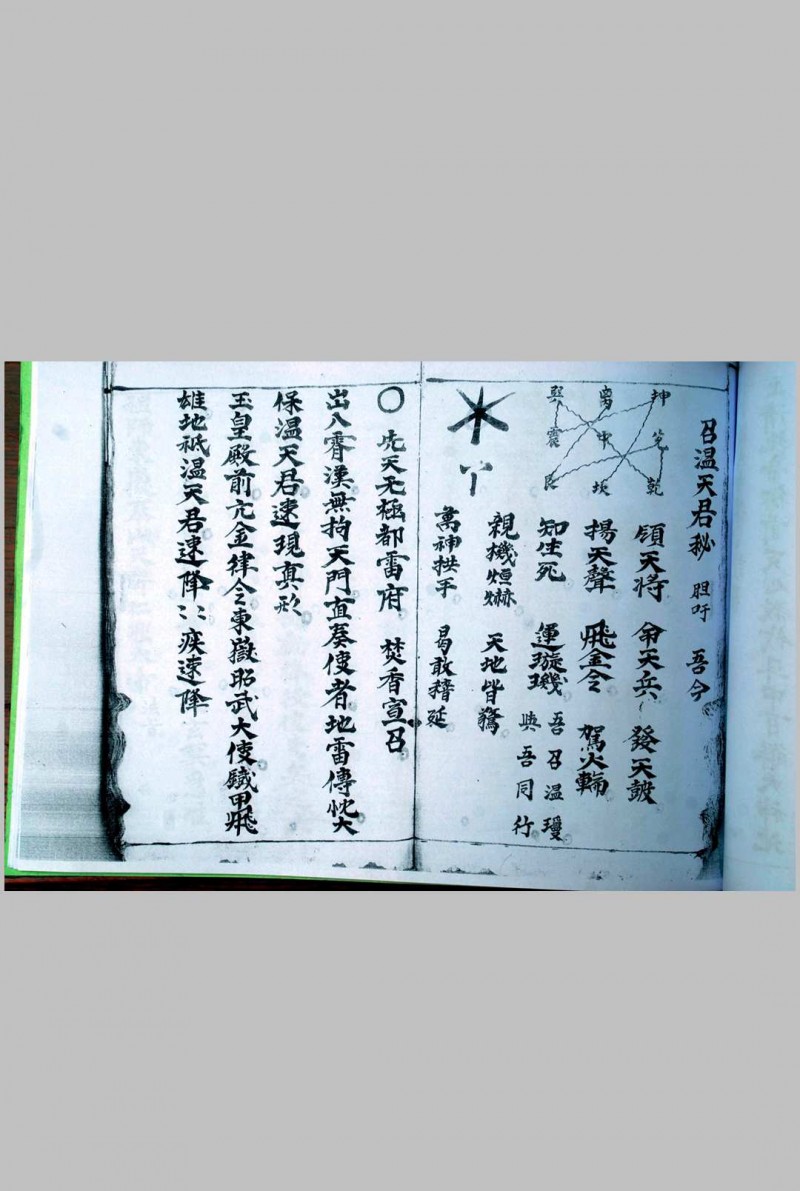 召温天君秘 胆吁 吾今
領天将 命天兵 發天皷
揚天聲 飛金令 駕火輪
知生死 運璇璣 吾召温瓊
親機烜爀 天地皆驚 與吾同行
萬神拱手 曷敢稽延
坤 兑 乾
离 中 坎
巽 震 艮
〇 虎天无極都雷府 焚香宣召
出入霄漢無拘天門直奏使者地雷傳忱大
保温天君速現真形
玉皇殿前亢金律令東嶽昭武大使鐵甲飛
雄地祇温天君速降〻疾速降